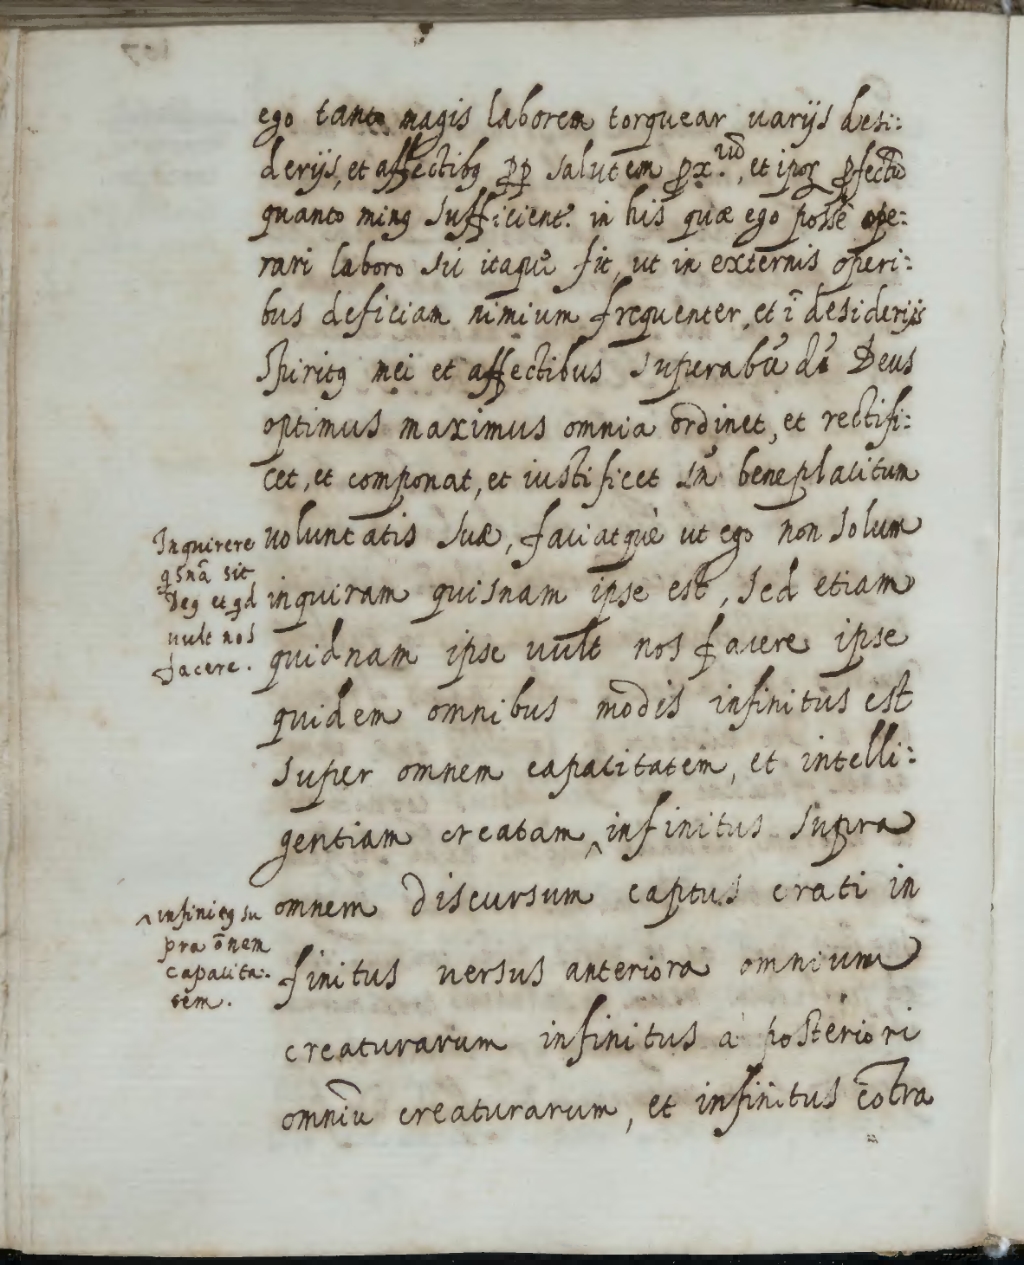 ego tanto magis laborem torquear uarijs desi:
derijs, et affectibꝰ ꝓꝑ salutem ꝓx.ᵘᵒ̄, et ipoꝝ ꝓfectū
quanto minꝰ sufficient. in his quæ ego possē ope:
rari laboro sic itaque fit, ut in externis operi:
bus deficiam nimium frequenter, et ī desiderijs
spiritꝰ mei et affectibus superabū dū Deus
optimus maximus omnia ordinet, et rectifi:
cet, et componat, et iustificet in beneplacitum
uoluntatis suæ, faciatquè ut ego non solum
inquiram quisnam ipse est, sed etiam
quidnam ipse uult nos facere ipse
quidem omnibus modis infinitus est
super omnem capacitatem, et intelli:
gentiam creatam ^ infinitus supra
omnem discursum captus crati in
finitus uersus anteriora omnium
creaturarum infinitus a posteriori
omniū creaturarum, et infinitus cōtra
Inquirere
qsnā sit
Deꝰ et qd
uult nos
facere.
^ infinitꝰ su
pra ōnem
capacita.
tem.